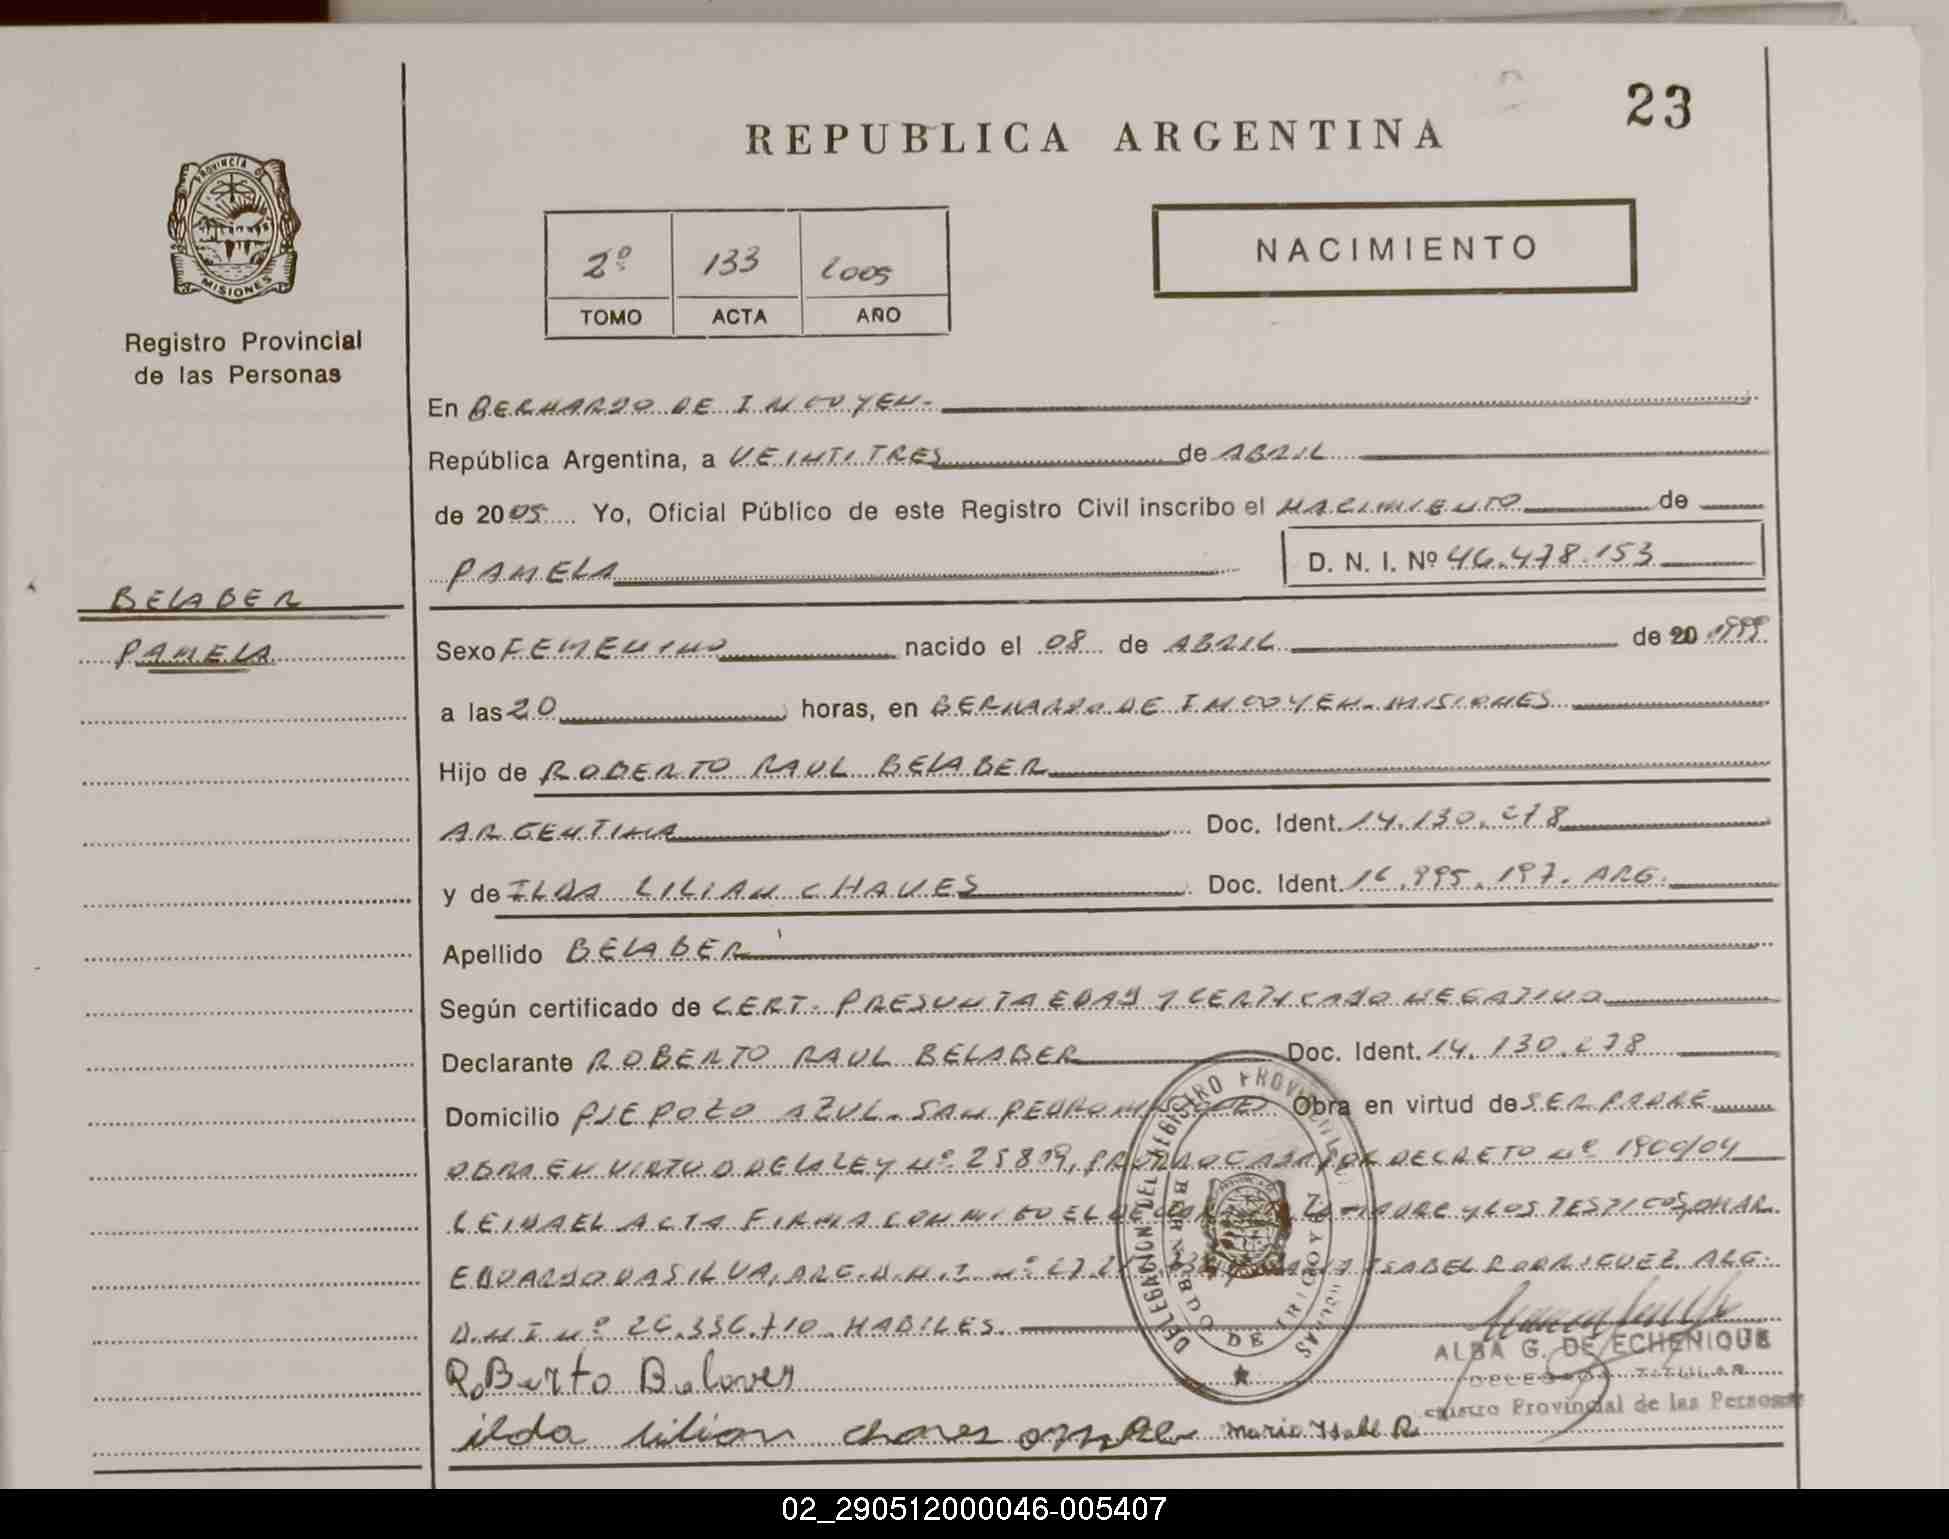 23
REPUBLICA ARGENTINA
PROVINCIA DE
MISIONES
2º 133 2005
TOMO ACTA AÑO
NACIMIENTO
Registro Provincial
de las Personas
En BERNARDO DE IRIGOYEN.
República Argentina, a VEINTITRES de ABRIL
de 2005 Yo, Oficial Público de este Registro Civil inscribo el NACIMIENTO de
PAMELA D. N. I. Nº 46.478.153
BELABER
PAMELA
Sexo FEMENINO nacido el 08 de ABRIL de 20 1999
a las 20 horas, en BERNARDO DE IRIGOYEN. MISIONES
Hijo de ROBERTO RAUL BELABER
ARGENTINA Doc. Ident. 14.130.278
y de ILDA LILIAN CHAVES Doc. Ident. 16.995.197. ARG.
Apellido BELABER
Según certificado de CERT. PRESUNTA EDAD Y CERTIFICADO NEGATIVO
Declarante ROBERTO RAUL BELABER Doc. Ident. 14.130.278
Domicilio PJE POZO AZUL. SAN PEDRO Obra en virtud de SER PADRE
OBRA EN VIRTUD DE LA LEY Nº 25819, PRORROGADA POR DECRETO Nº 1900/04
LEIDA EL ACTA FIRMA CONMIGO EL LA MADRE Y LOS TESTIGOS, OMAR
EDUARDO DA SILVA, ARG. D.N.I. Nº ISABEL RODRIGUEZ ARG.
D.N.I Nº 26.336.710. HABILES.
DELEGACION DEL REGISTRO PROVINCIAL
BERNARDO DE IRIGOYEN
ALBA G. DE ECHENIQUE
DELEGADA TITULAR
Registro Provincial de las Personas
RoBerto
ilda lilian chaves Maria Isabel R.
02_290512000046-005407